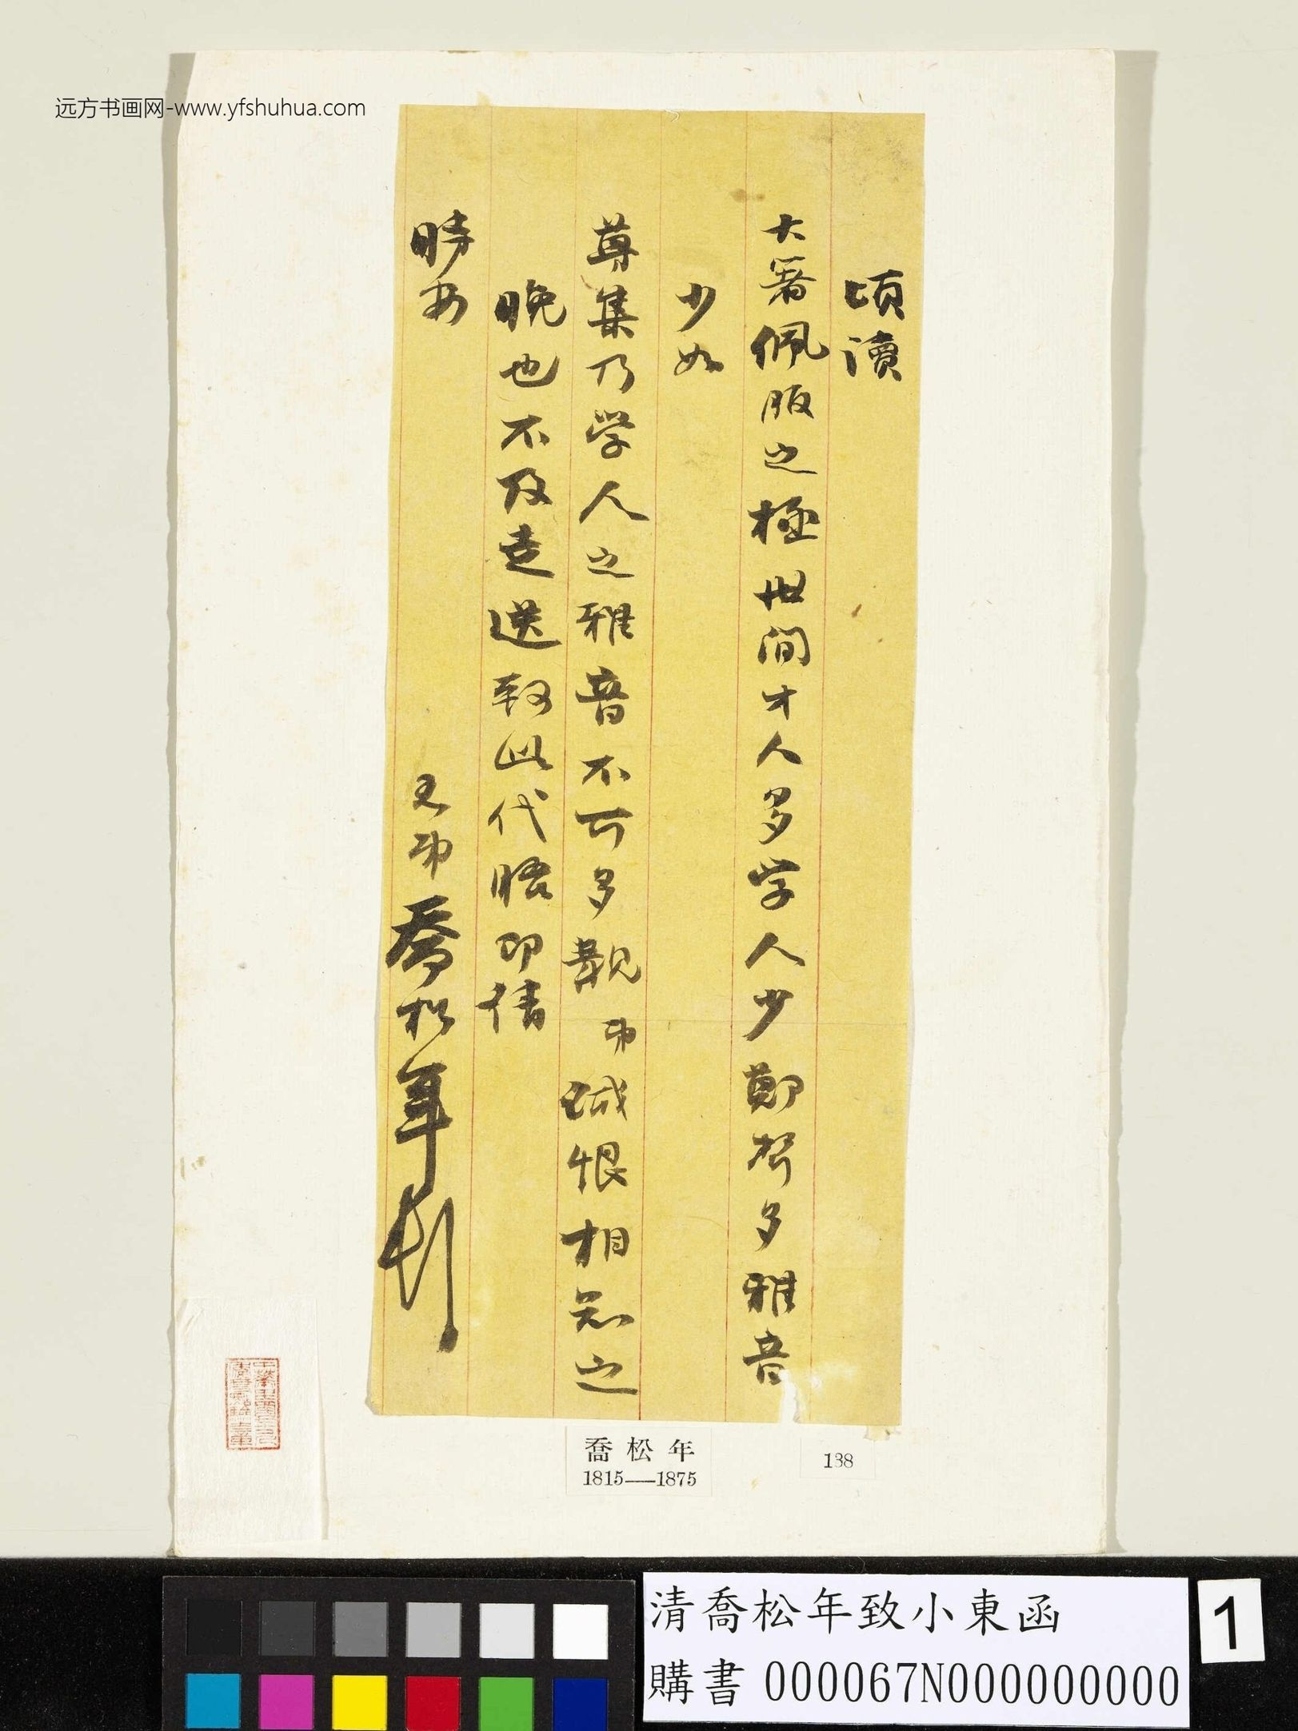 远方书画网-www.yfshuhua.com
頃讀
大著佩服之極世间才人多学人少鄭聲多雅音
少如
尊集乃学人之雅音不可多覯弟誠恨相知之
晚也不及走送致此代晤即請
時安
弟喬松年頓
喬松年
1815—1875
138
清喬松年致小東函
購書 000067N000000000
1